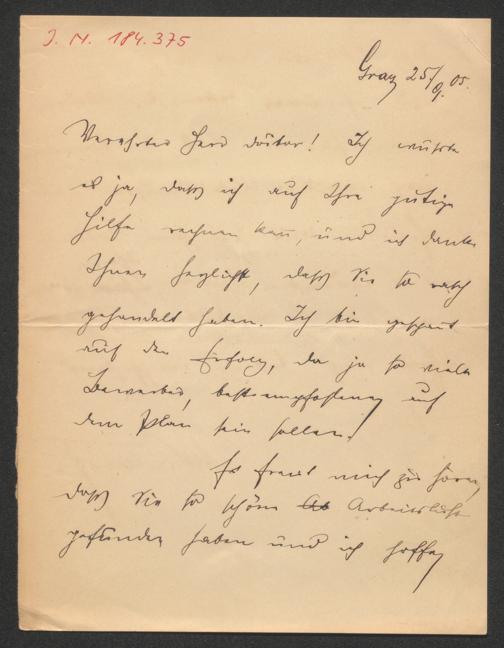 I. N. 184.375
Graz 25/9. 05.
Verehrter Herr Doktor! Ich wußte
es ja, daß ich auf Ihre gütige
Hilfe rechnen kann, und ich danke
Ihnen herzlichst, daß Sie so rasch
gehandelt haben. Ich bin gespannt
auf den Erfolg, da ja so viele
Bewerber, bestempfohlene, auf
dem Plan sein sollen!
Es freut mich zu hören,
daß Sie so schöne Arbeitslust
gefunden haben und ich hoffe,